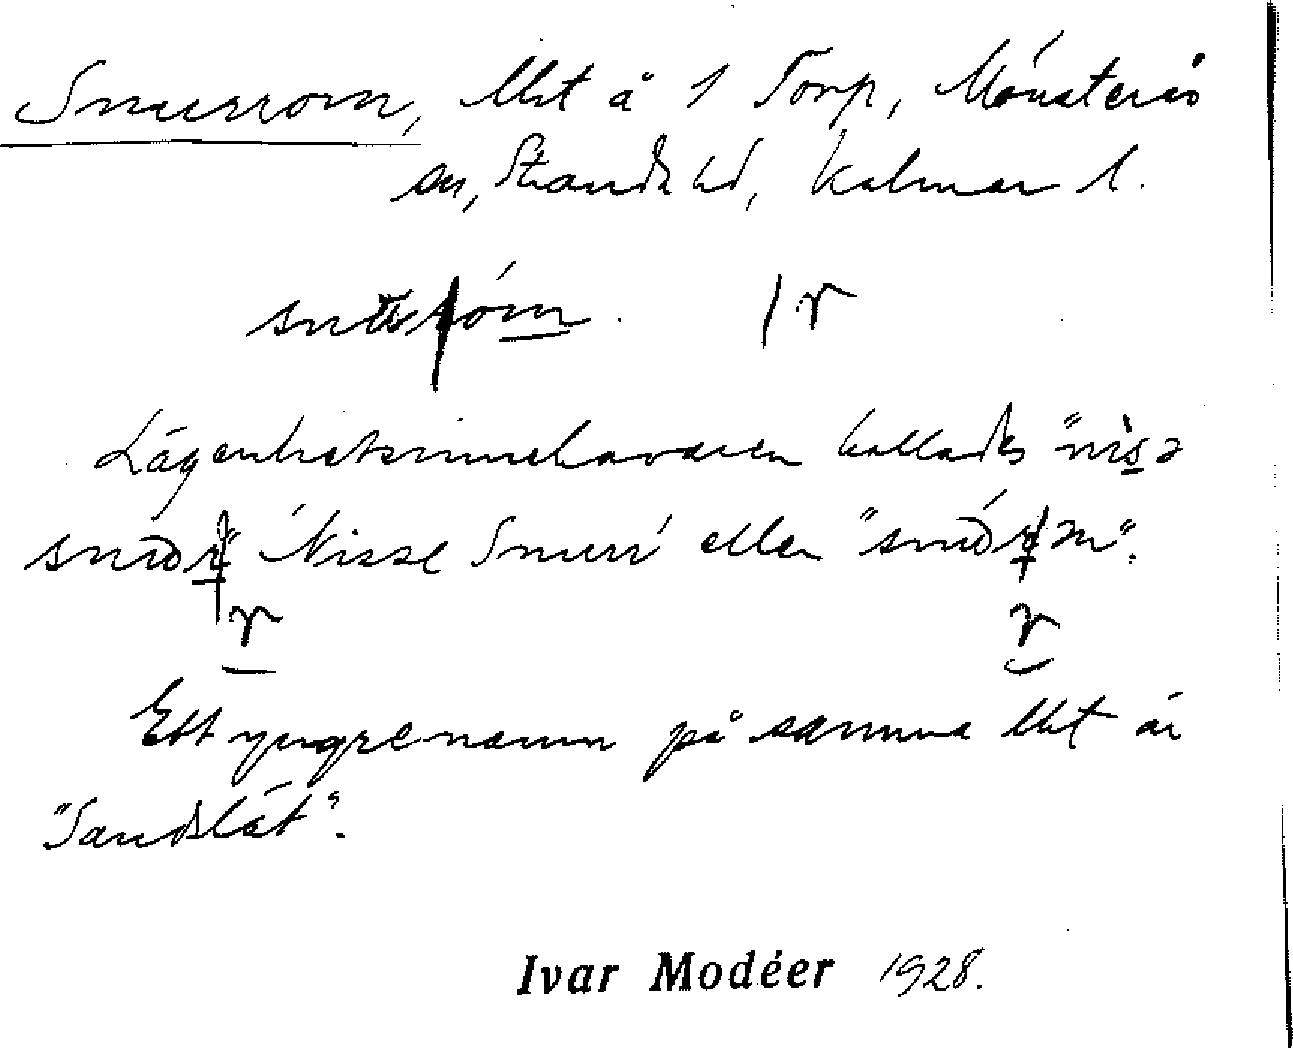 Snurrom, lht å 1 Torp, Mönsterås
sn, Stranda hd, Kalmar l.
Lägenhetsinnehavaren kallades "nisə
"Nisse Snurr" eller
Ett yngre namn på samma lht är
"Sandslät".
Ivar Modéer 1928.